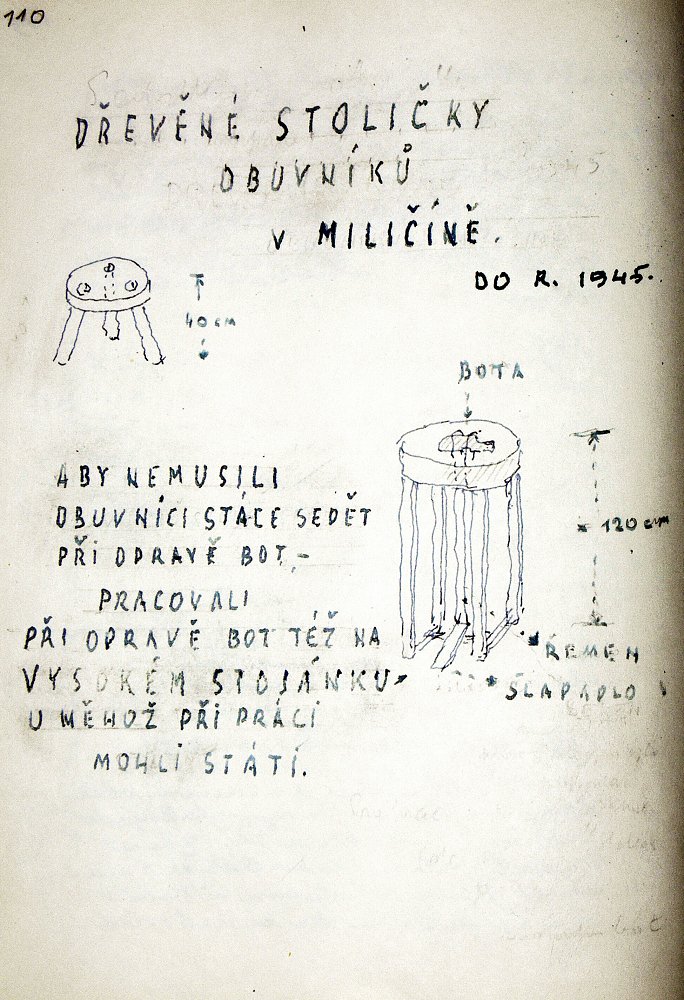 110
DŘEVĚNÉ STOLIČKY
OBUVNÍKŮ
V MILIČÍNĚ.
DO R. 1945.
40 cm
BOTA
120 cm
ABY NEMUSILI
OBUVNÍCI STÁLE SEDĚT
PŘI OPRAVĚ BOT,-
PRACOVALI
PŘI OPRAVĚ BOT TÉŽ NA
VYSOKÉM STOJÁNKU
U NĚHOŽ PŘI PRÁCI
MOHLI STÁTI.
ŘEMEN
ŠLAPADLO